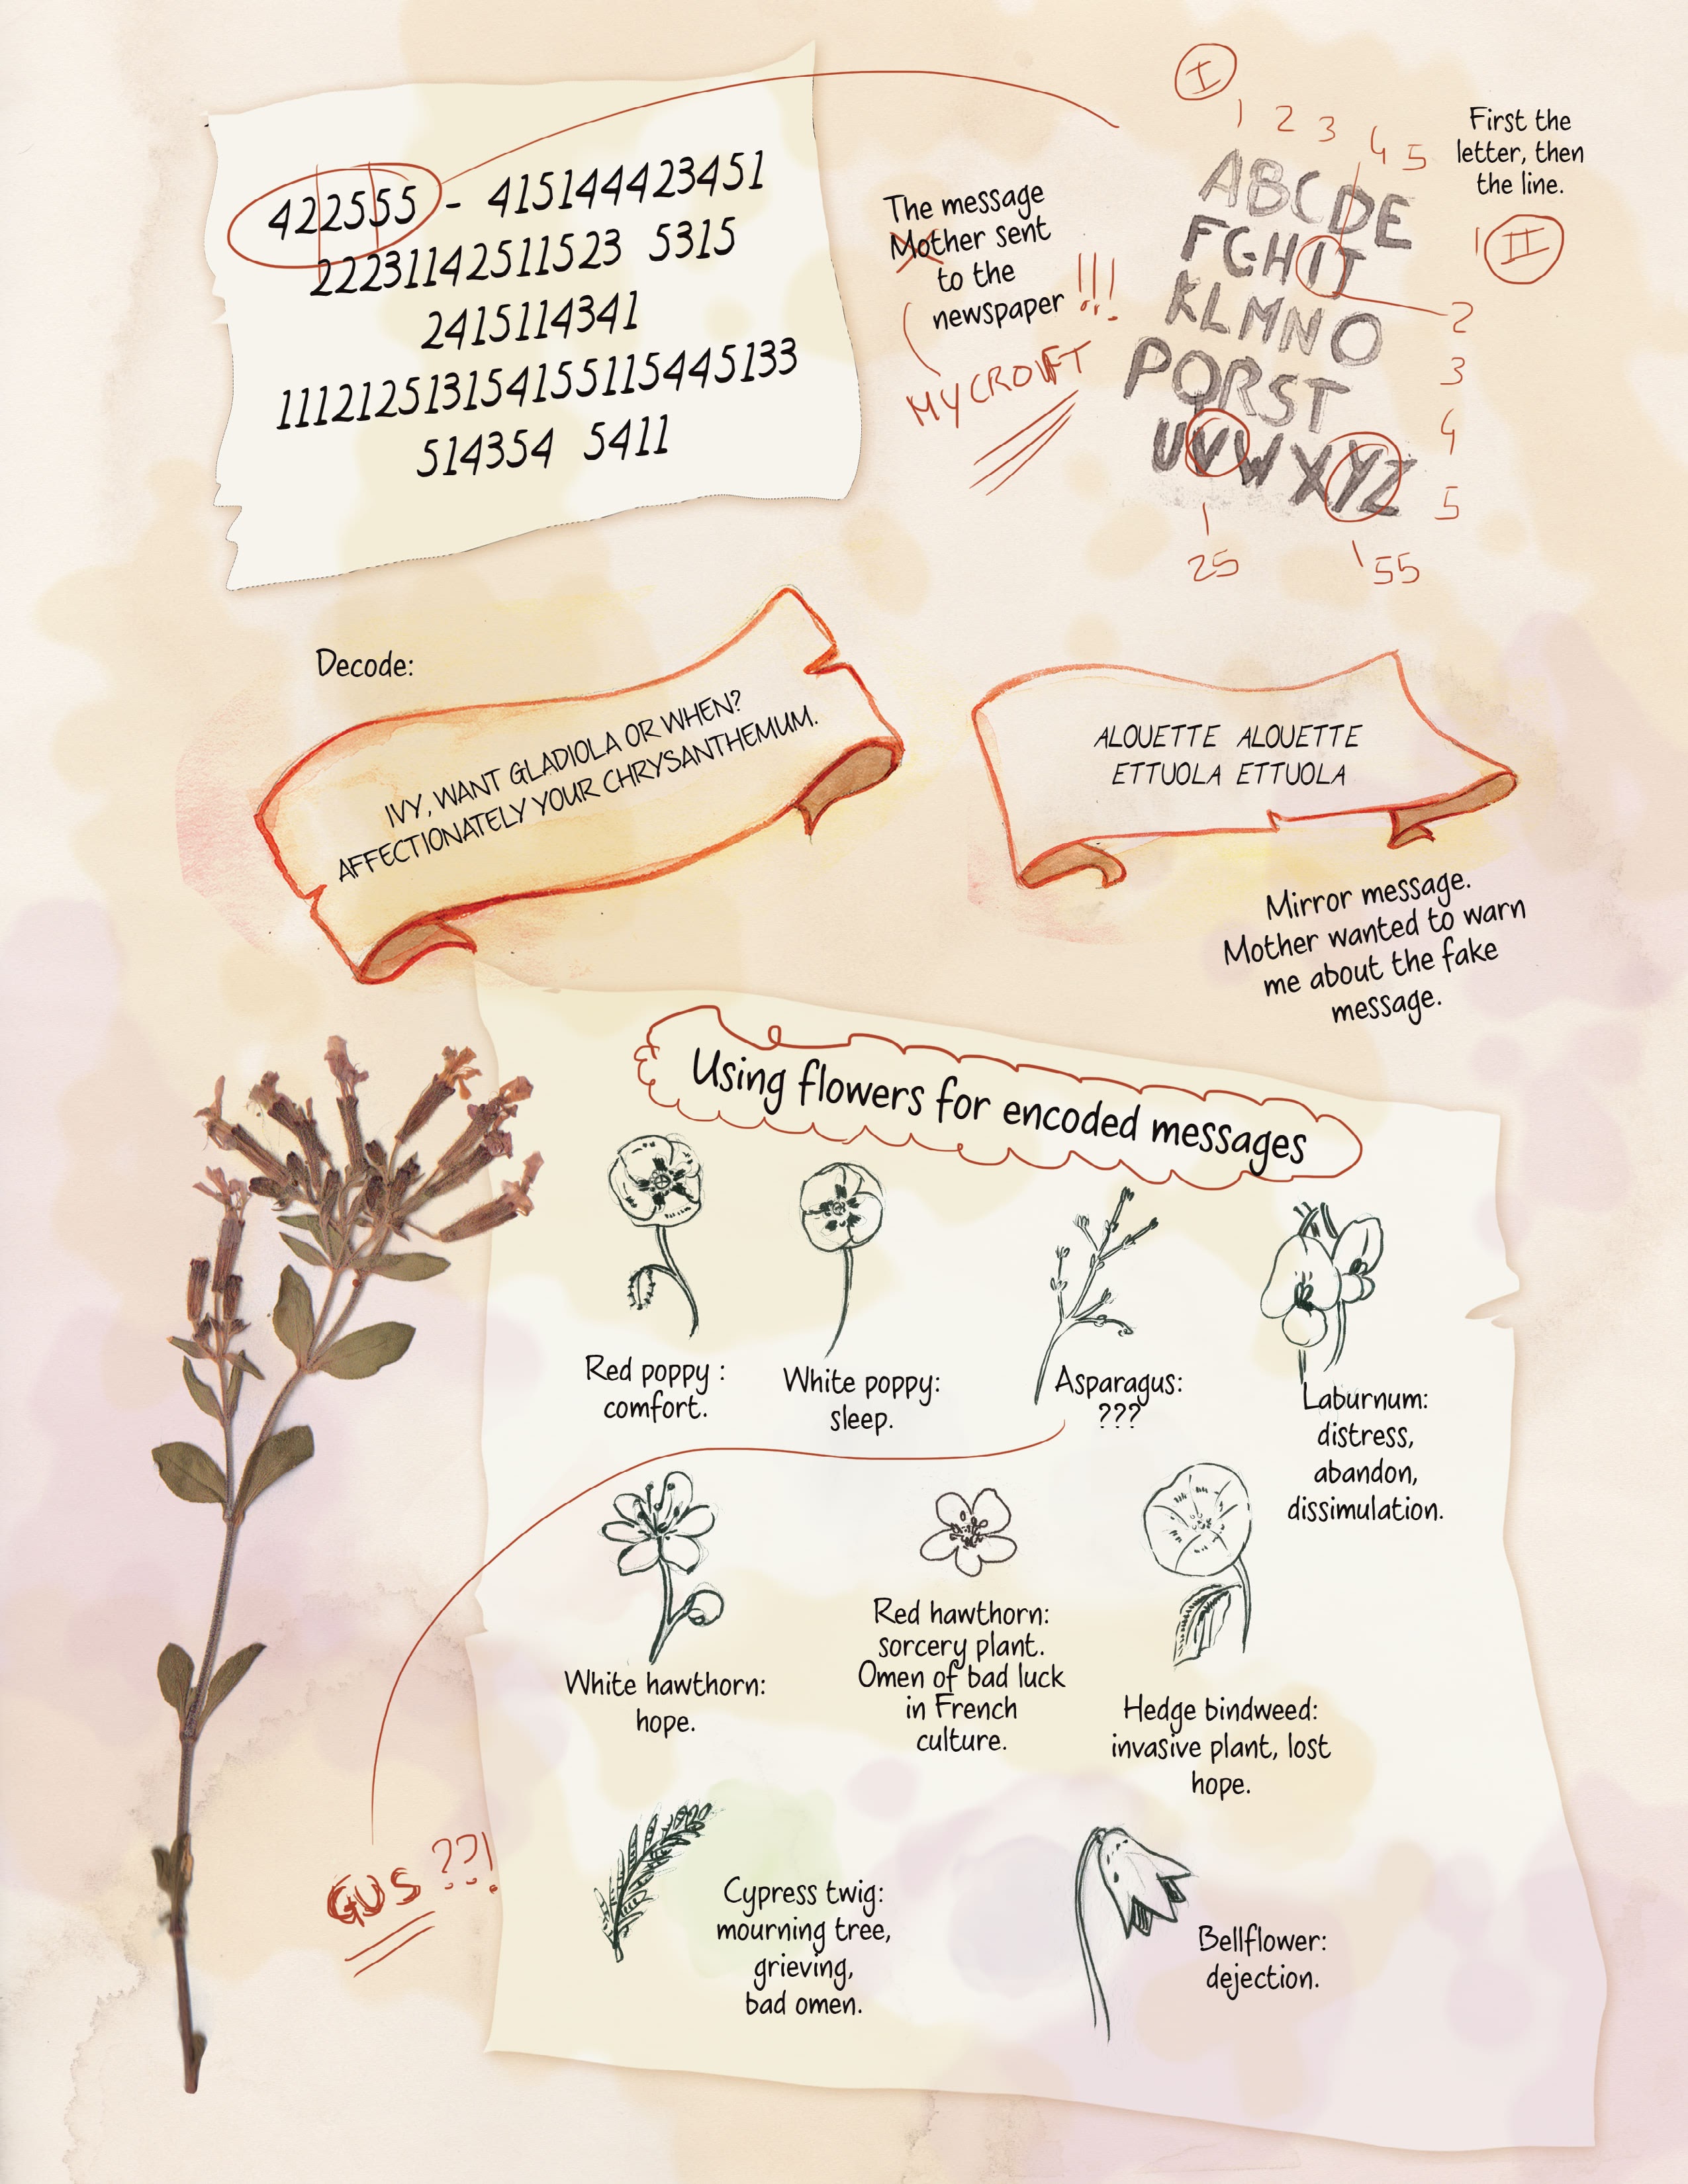 I
1 2 3 4 5
First the
letter, then
the line.
422555 - 415144423451
22231142511523 5315
2415114341
111212513154155115445133
514354 5411
The message
Mother sent
to the
newspaper !!!
MYCROFT
ABCDE
FGHIJ
KLMNO
PQRST
UVWXYZ
1 II
2
3
4
5
25
55
Decode:
IVY, WANT GLADIOLA OR WHEN?
AFFECTIONATELY YOUR CHRYSANTHEMUM.
ALOUETTE ALOUETTE
ETTUOLA ETTUOLA
Mirror message.
Mother wanted to warn
me about the fake
message.
Using flowers for encoded messages
Red poppy :
comfort.
White poppy:
sleep.
Asparagus:
???
Laburnum:
distress,
abandon,
dissimulation.
White hawthorn:
hope.
Red hawthorn:
sorcery plant.
Omen of bad luck
in French
culture.
Hedge bindweed:
invasive plant, lost
hope.
GUS ??!
Cypress twig:
mourning tree,
grieving,
bad omen.
Bellflower:
dejection.